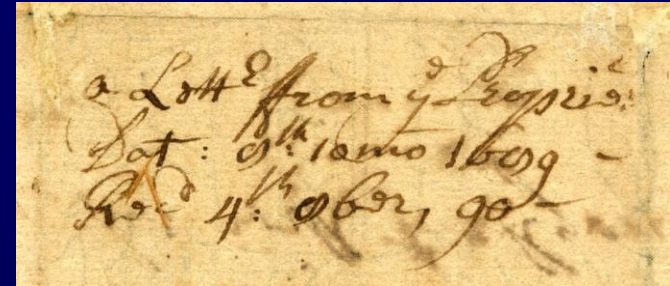 a Lettr from ye Proprie:
Dat: 8th: 10mo 1689 -
Recd 4th: 8ber, 90 -